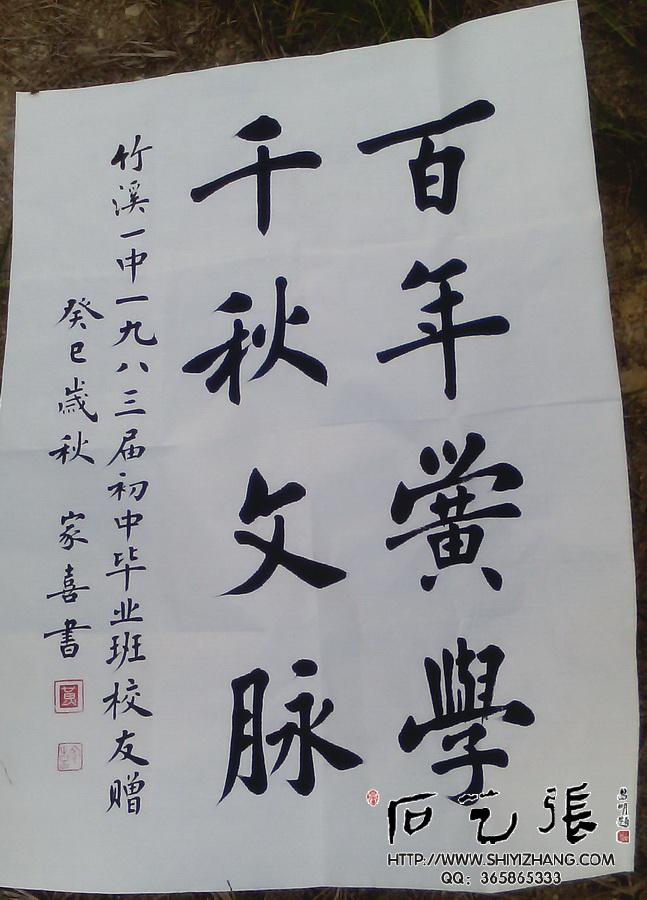 百年黉學
千秋文脉
竹溪一中一九八三届初中毕业班校友赠
癸巳歲秋 家喜書
石艺張
HTTP://WWW.SHIYIZHANG.COM
QQ：365865333